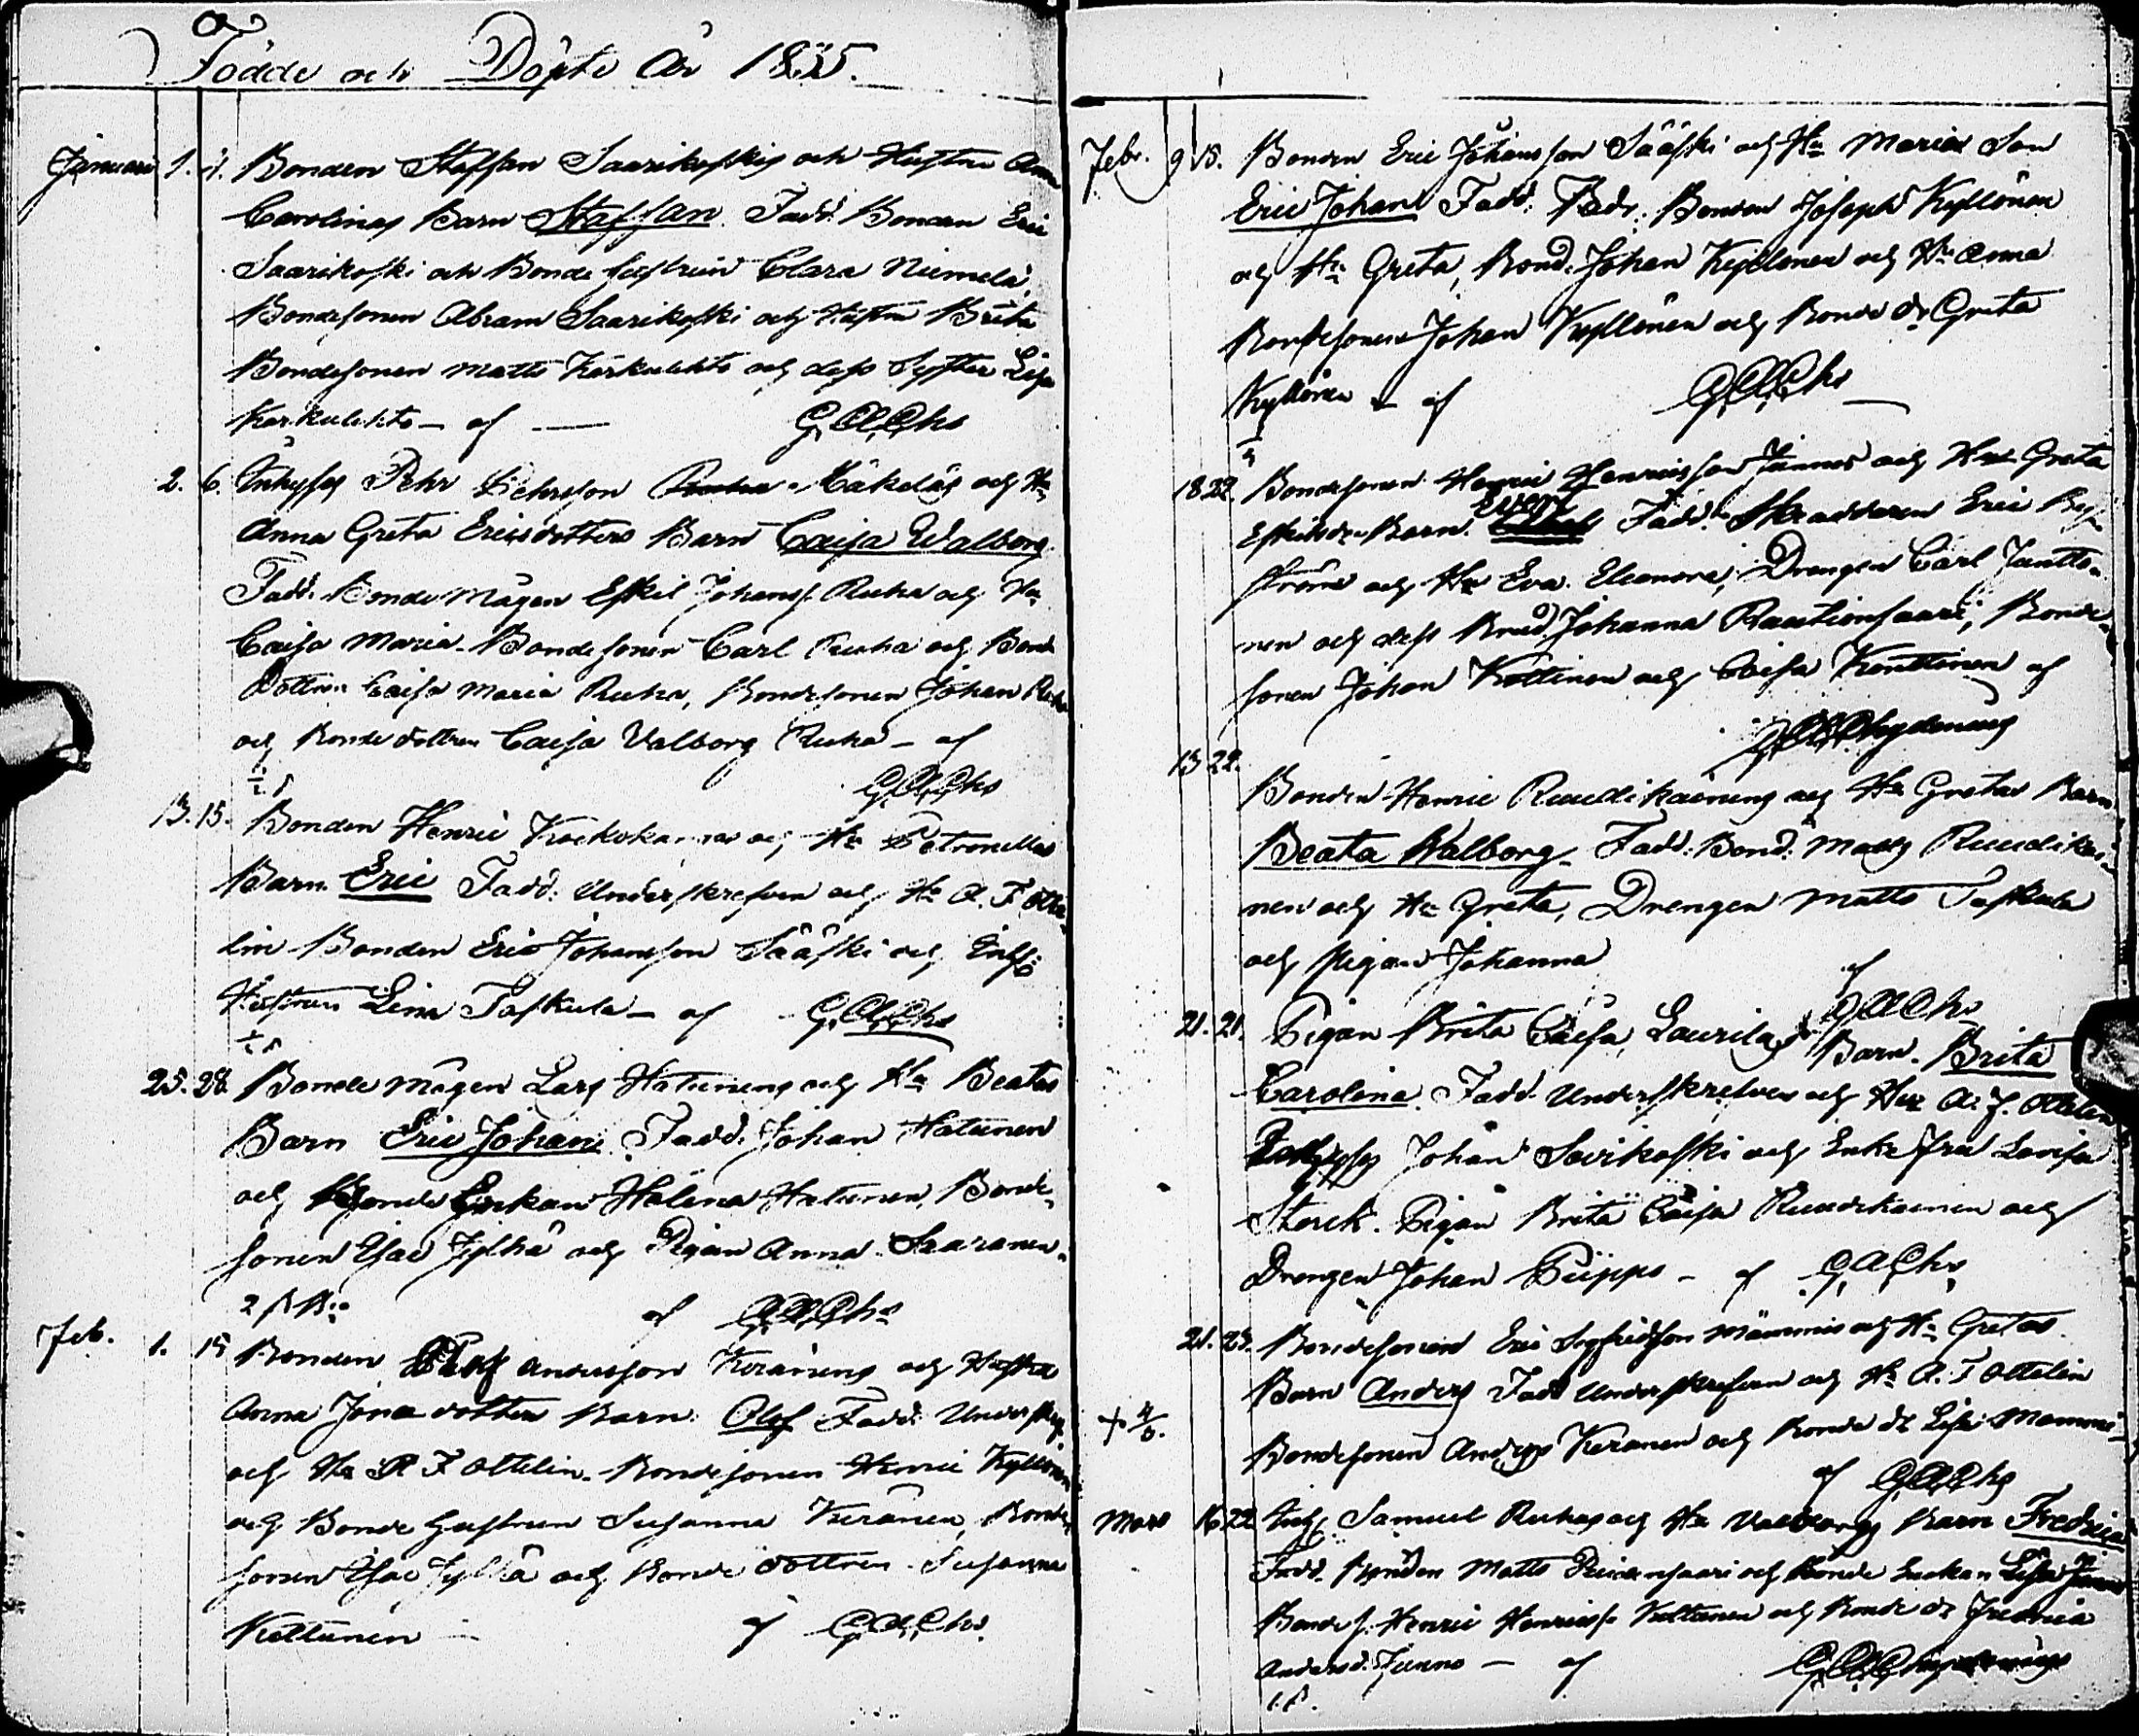 Födde och Döpte År 1835.
Januari 1. 11. Bonden Staffan Saarikoskis och Hustru Anna
Carolinas Barn Staffan Fadd. Bonden Eric
Saarikoski och Bonde hustrun Clara Niemelä,
Bondesonen Abram Saarikoski och Hustru Brita
Bondesonen Matts Karkulehto och dess Syster Lisa
Karkulehto – af — G.A.Chs
2. 6. Inhyses Pehr Pehrsson Mäkeläs och Hu
Anna Greta Ericsdotters Barn Caisa Walborg
Fadd. Bonde Mågen Eskil Johanss. Ruha och Hu
Caisa Maria. Bondesonen Carl Ruha och Bonde
Dottren Caisa Maria Ruha, Bondesonen Johan Ruha
och Bonde dottren Caisa Valborg Ruha – af
G.A.Chs
13. 15. Bonden Henric och Hu Petronellas
Barn Eric Fadd: Underskrefven och Hu A. F. Otte
lin Bonden Eric Johansson Sääski och Inhs:
Hustrun Lena Taskula – af G.A.Chs
25. 28. Bonde mågen Lars Hatunens och Hu Beatas
Barn Eric Johan Fadd. Johan Hatunen
och Bonde Enkan Helena Hatunen, Bonde
sonen Isac Jylhä och Pigan Anna Saaranen
af G.A.Chs
Feb. 1. 15 Bonden Andersson Keränens och Hustru
Anna Jonae dotters Barn: Olof Fadd: Underskr.
och Hu A F Ottelin. Bondesonen Henric Kyllönen
och Bonde hustrun Susanna Keränen, Bonde
sonen Isac Jylhä och Bonde dottren Susanna
Keltunen – af G.A.Chs.
Febr. 9 15. Bonden Eric Johansson Sääski och Hu Marias Son
Eric Johan Fadd: Bonden Joseph Kyllönen
och Hu Greta, Bond. Johan Kyllönen och Hu Anna
Bondesonen Johan Kyllönen och Bonde dr Greta
Kyllönen – af G.A.Chs
18 22. Bondesonen Henric Henricsson Junnos och Hu Greta
Eskilsdr Barn. Fadd. Skraddaren Eric By
ström och Hu Eva Eleonora, Drengen Carl Juntto
nen och dess Brud Johanna Rautionsaari, Bonde
sonen Johan Kettinen och Caisa Kenttinen af
G.A.Chydenius
13 22.
Bonden Henric Ruudikainens och Hu Gretas Barn
Beata Walborg. Fadd: Bond: Matts Ruudikai
nen och Hu Greta, Drengen Matts Taskula
och Pigan Johanna
af G.A.Chs
21. 21. Pigan Brita Caisa Laurilas Barn. Brita
Carolina. Fadd. Underskrefven och Hu A. F. Ottelin
Inhyses Johan Savikoski och Enkefru Lovisa
Storck. Pigan Brita Caisa Ruudikainen och
Drengen Johan Piippo – af G.A.Chs
21. 23. Bondesonen Eric Sigfridsson Mämmis och Hu Gretas
Barn Anders Fadd Underskrefven och Hu A. F Ottelin
+ 4/6. Bondesonen Anders Keränen och Bonde dr Lisa Mämmi
af G.A.Chs
Mars 16 22 Inhs Samuel Ruhas och Hu Valborgs Barn Fredrica
Fadd. Bonden Matts och Bonde Enkan Lisa Junno
Bondes. Henric Henricss. Keltunen och Bonde dr Fredrica
Andersd. Junno – af G.A.Chydenius